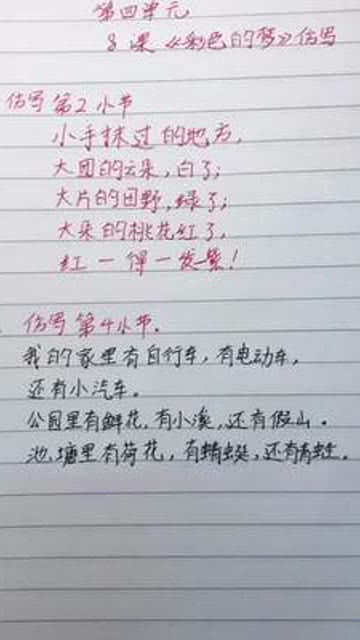 第四单元
8 课《彩色的梦》仿写
仿写 第2小节
小手抹过的地方,
大团的云朵,白了;
大片的田野,绿了;
大朵的桃花红了,
红一得一发紫!
仿写 第4小节.
我的家里有自行车,有电动车,
还有小汽车。
公园里有鲜花,有小溪,还有假山。
池塘里有荷花,有蜻蜓,还有青蛙。